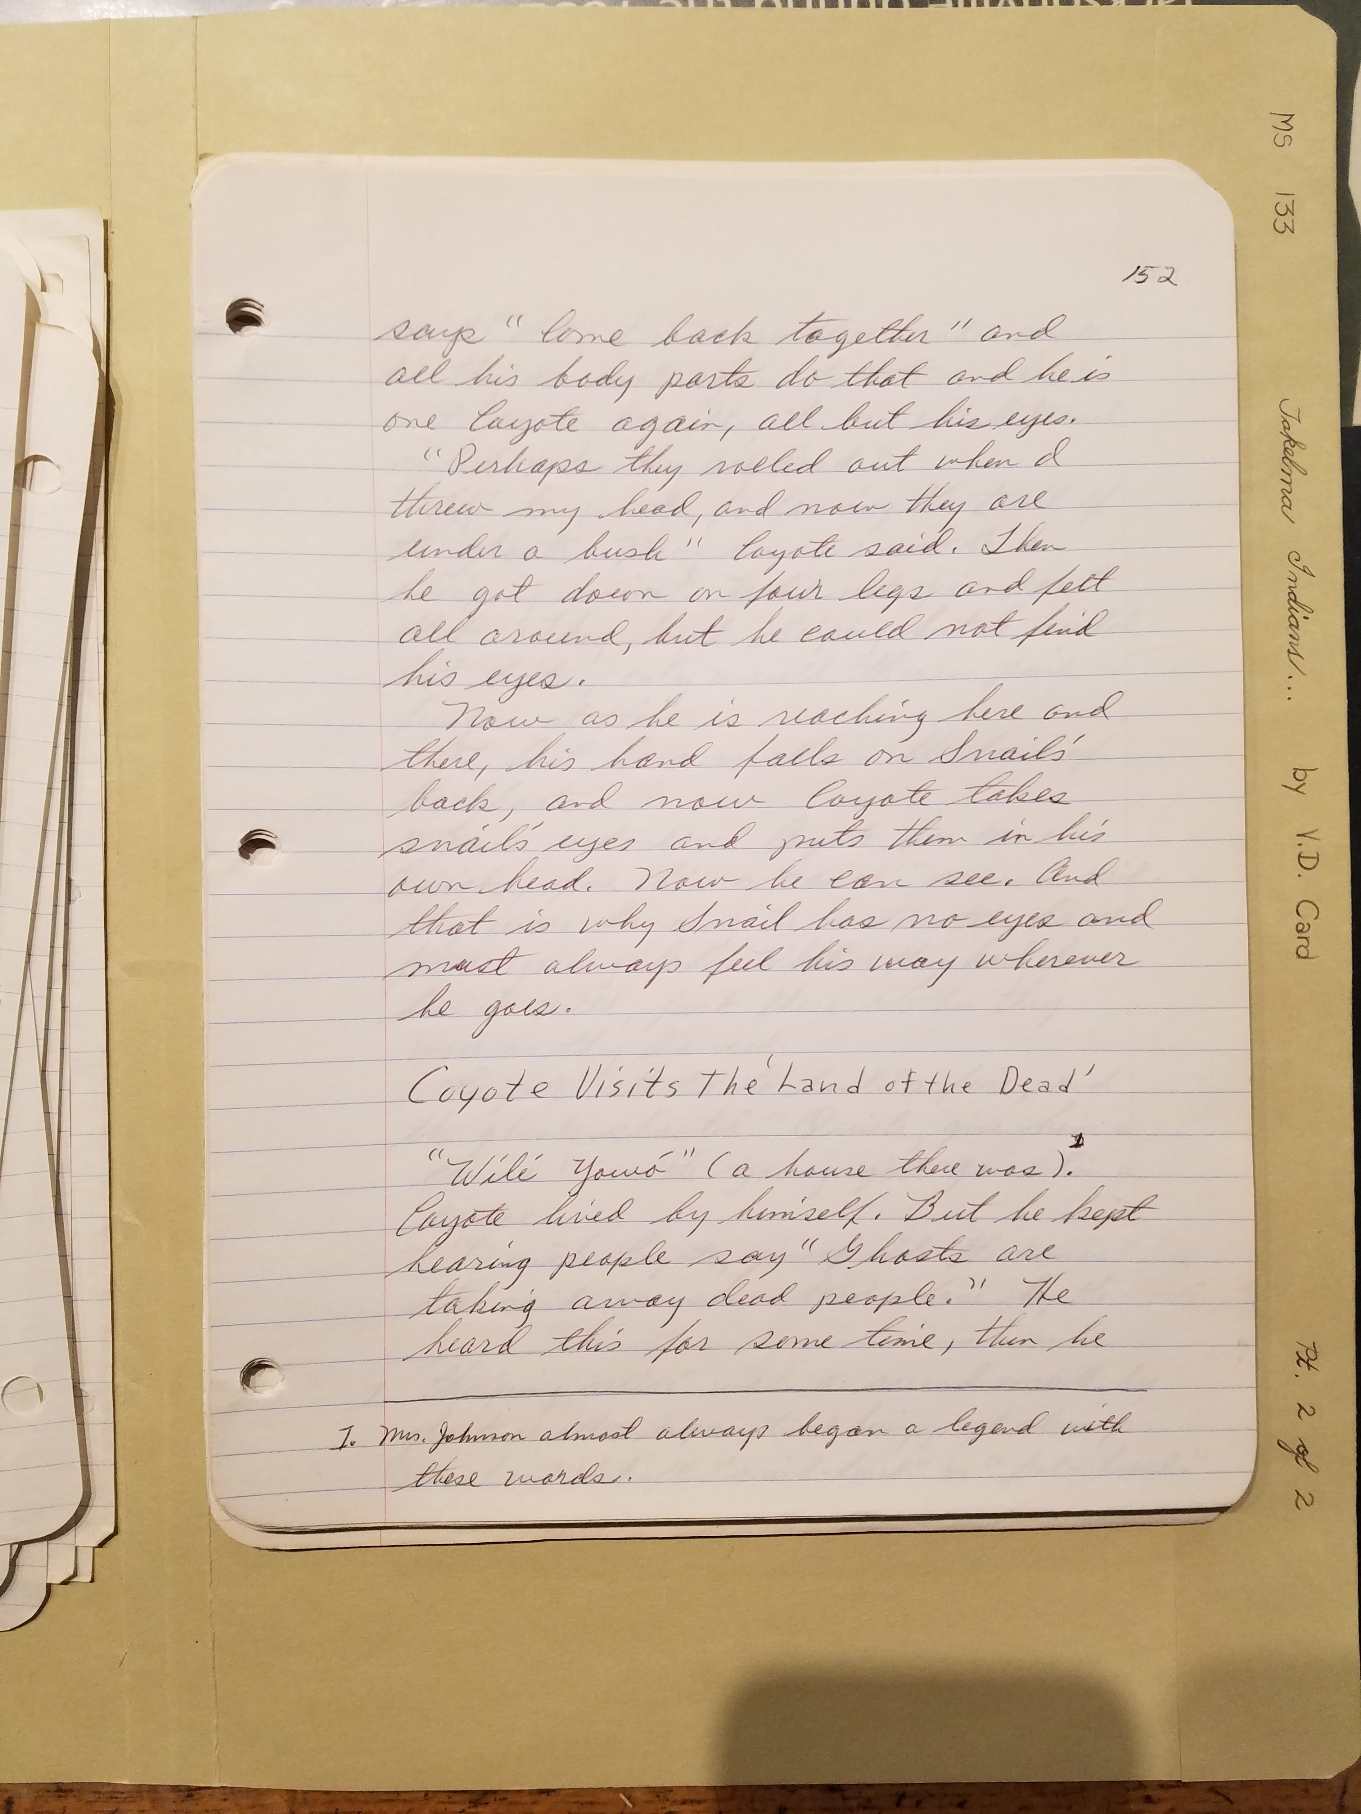 152
says "Come back together" and
all his body parts do that and he is
one Coyote again, all but his eyes.
"Perhaps they rolled out when I
threw my head, and now they are
under a bush" Coyote said. Then
he got down on four legs and felt
all around, but he could not find
his eyes.
Now as he is reaching here and
there, his hand falls on Snail's
back, and now Coyote takes
snail's eyes and puts them in his
own head. Now he can see. And
that is why Snail has no eyes and
must always feel his way wherever
he goes.
Coyote Visits The 'Land of the Dead'
"Wílí Yowó" (a house there was).1
Coyote lived by himself. But he kept
hearing people say "Ghosts are
taking away dead people." He
heard this for some time, then he
1. Mrs. Johnson almost always began a legend with
these words.
MS 133 Takelma Indians... by V.D. Card Pt. 2 of 2